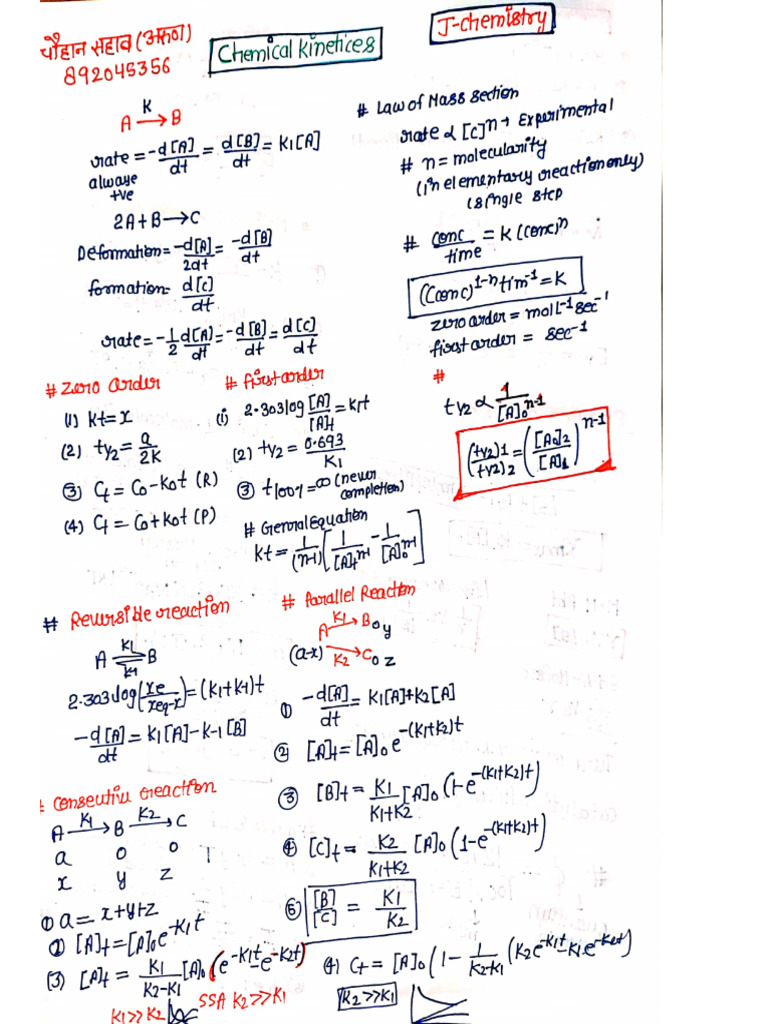 चौहान सहाव (अरुण)
892045356
Chemical Kinetices
J-chemistry
K
A → B
rate = -d[A]/dt = d[B]/dt = K1[A]
alwaye
+ve
2A + B → C
Deformation = -d[A]/2dt = -d[B]/dt
formation = d[C]/dt
rate = -1/2 d[A]/dt = -d[B]/dt = d[C]/dt
# Law of Mass Section
rate ∝ [C]^n → Experimental
# n = molecularity
(in elementary reaction only)
(single step
# conc/time = K (conc)^n
(Conc)^1-n tim^-1 = K
zero order = mol L^-1 sec^-1
first order = sec^-1
# Zero Order
(1) Kt = x
(2) t1/2 = a/2K
(3) Ct = C0 - K0t (R)
(4) Ct = C0 + K0t (P)
# first order
(1) 2.303 log [A]/[A]t = K1t
(2) t1/2 = 0.693/K1
(3) t100% = ∞ (never
completion)
# Genral Equation
Kt = 1/(n-1) [1/[A]t^n-1 - 1/[A]0^n-1]
#
t1/2 ∝ 1/[A]0^n-1
(t1/2)1/(t1/2)2 = ([A0]2/[A]1)^n-1
# Reversible reaction
K1
A ⇌ B
K-1
2.303 log(xe/xeq-x) = (K1+K-1)t
-d[A]/dt = K1[A] - K-1[B]
# Parallel Reaction
A K1→ B 0 y
(a-x) K2→ C 0 z
① -d[A]/dt = K1[A] + K2[A]
② [A]t = [A]0 e^-(K1+K2)t
③ [B]t = K1/K1+K2 [A]0 (1-e^-(K1+K2)t)
④ [C]t = K2/K1+K2 [A]0 (1-e^-(K1+K2)t)
⑤ [B]/[C] = K1/K2
# Consecutiv reaction
A K1→ B K2→ C
a 0 0
x y z
① a = x+y+z
② [A]t = [A]0 e^-K1t
(3) [A]t = K1/K2-K1 [A]0 (e^-K1t - e^-K2t)
K1>>K2
SSA K2>>K1
(4) Ct = [A]0 (1 - 1/K2-K1 (K2e^-K1t - K1.e^-K2t)
K2>>K1